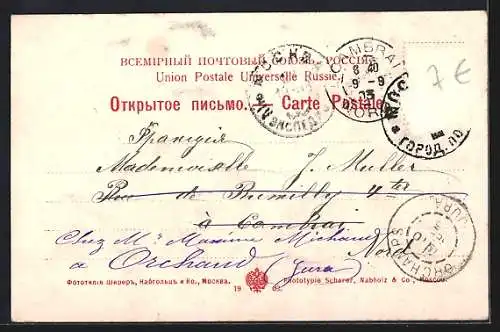 ВСЕМІРНЫЙ ПОЧТОВЫЙ СОЮЗЪ. РОССІЯ.
Union Postale Universelle Russie.
МОСКВА
CAMBRAI
8 40
9 - 9
03
NORD
7€
Открытое письмо. — Carte Postale
ГОРОД. ПО
Франція
Mademoiselle J. Muller
Rue de Rumilly 4 ter
à Cambrai
Nord
Chez Mr Maxime Michaud
à Orchand Jura
ORCHAMPS
JURA
Фототипія Шереръ, Набгольцъ и Ко., Москва.
19
Phototypie Scherer, Nabholz & Co., Moscou.